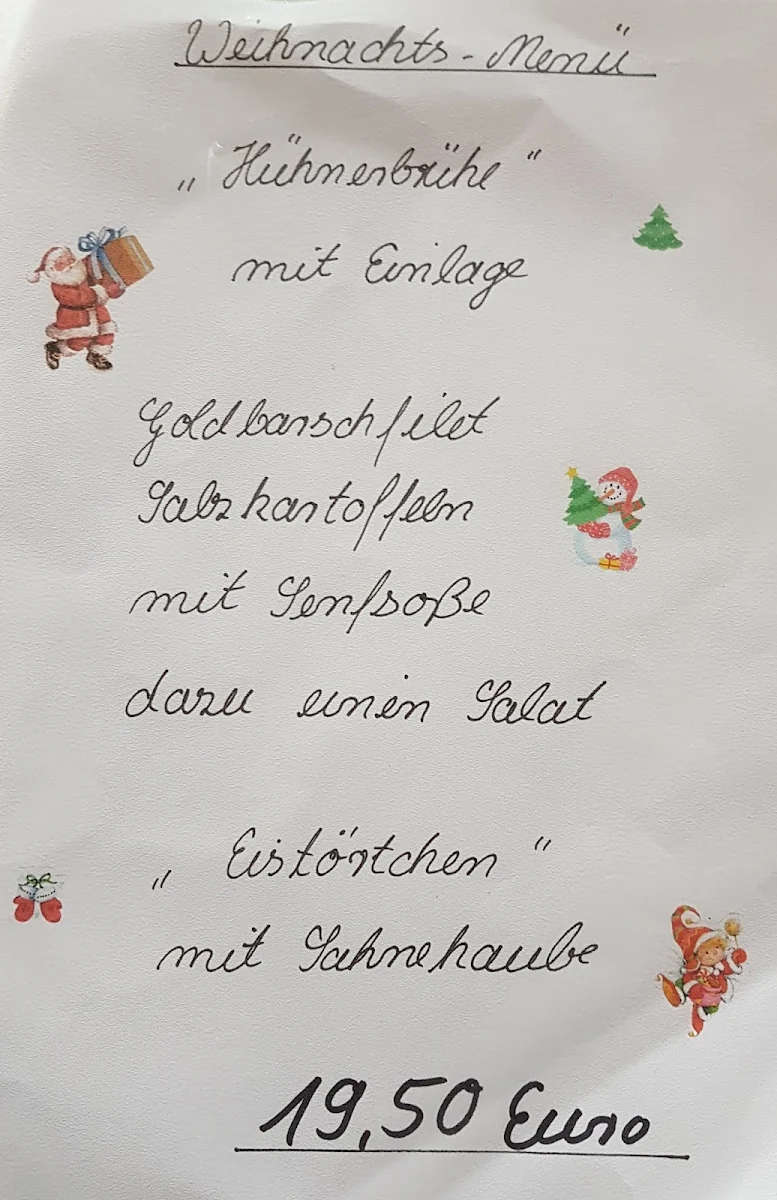 Weihnachts-Menü
„Hühnerbrühe"
mit Einlage
Goldbarschfilet
Salzkartoffeln
mit Senfsoße
dazu einen Salat
„Eistörtchen"
mit Sahnehaube
19,50 Euro